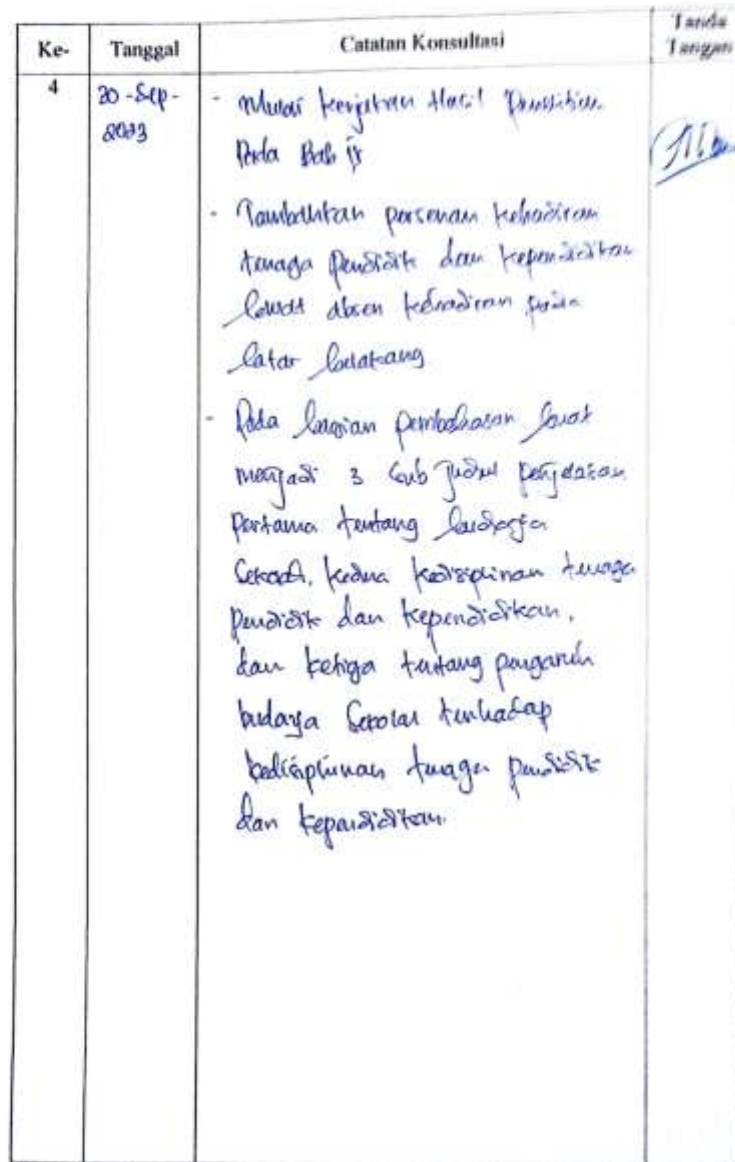 Ke-
Tanggal
Catatan Konsultasi
Tanda
Tangan
4
20-Sep-
2023
- Mulai kerjakan Hasil Penelitian
Pada Bab IV
- Tambahkan persenan kehadiran
tenaga pendidik dan kependidikan
lewat absen kehadiran pada
latar belakang
- Pada bagian pembahasan buat
menjadi 3 sub judul penjelasan
pertama tentang budaya
sekolah, kedua kedisiplinan tenaga
pendidik dan kependidikan,
dan ketiga tentang pengaruh
budaya sekolah terhadap
kedisiplinan tenaga pendidik
dan kependidikan.